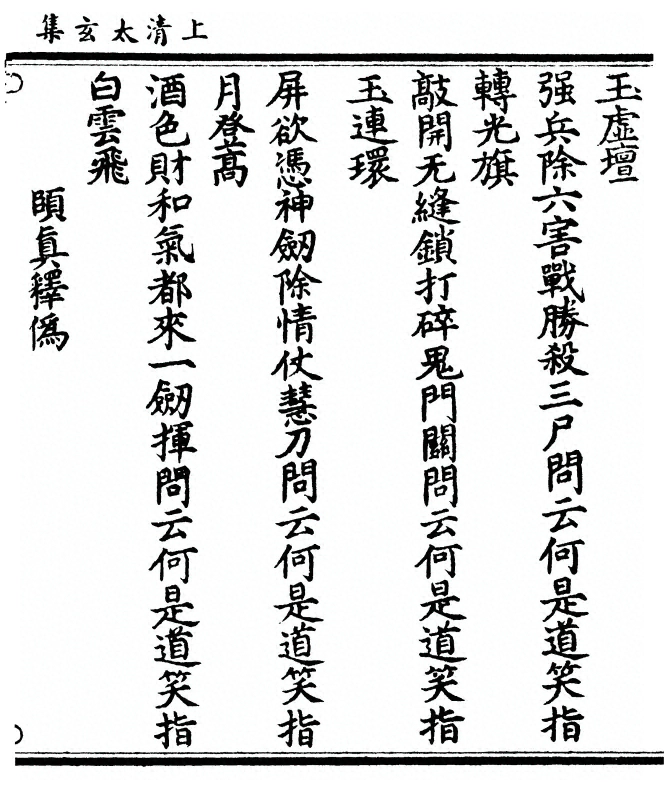 上清太玄集
玉虛壇
强兵除六害戰勝殺三尸問云何是道笑指
轉光旗
敲開无縫鎖打碎鬼門關問云何是道笑指
玉連環
屏欲憑神劒除情仗慧刀問云何是道笑指
月登高
酒色財和氣都來一劒揮問云何是道笑指
白雲飛
頤真釋僞